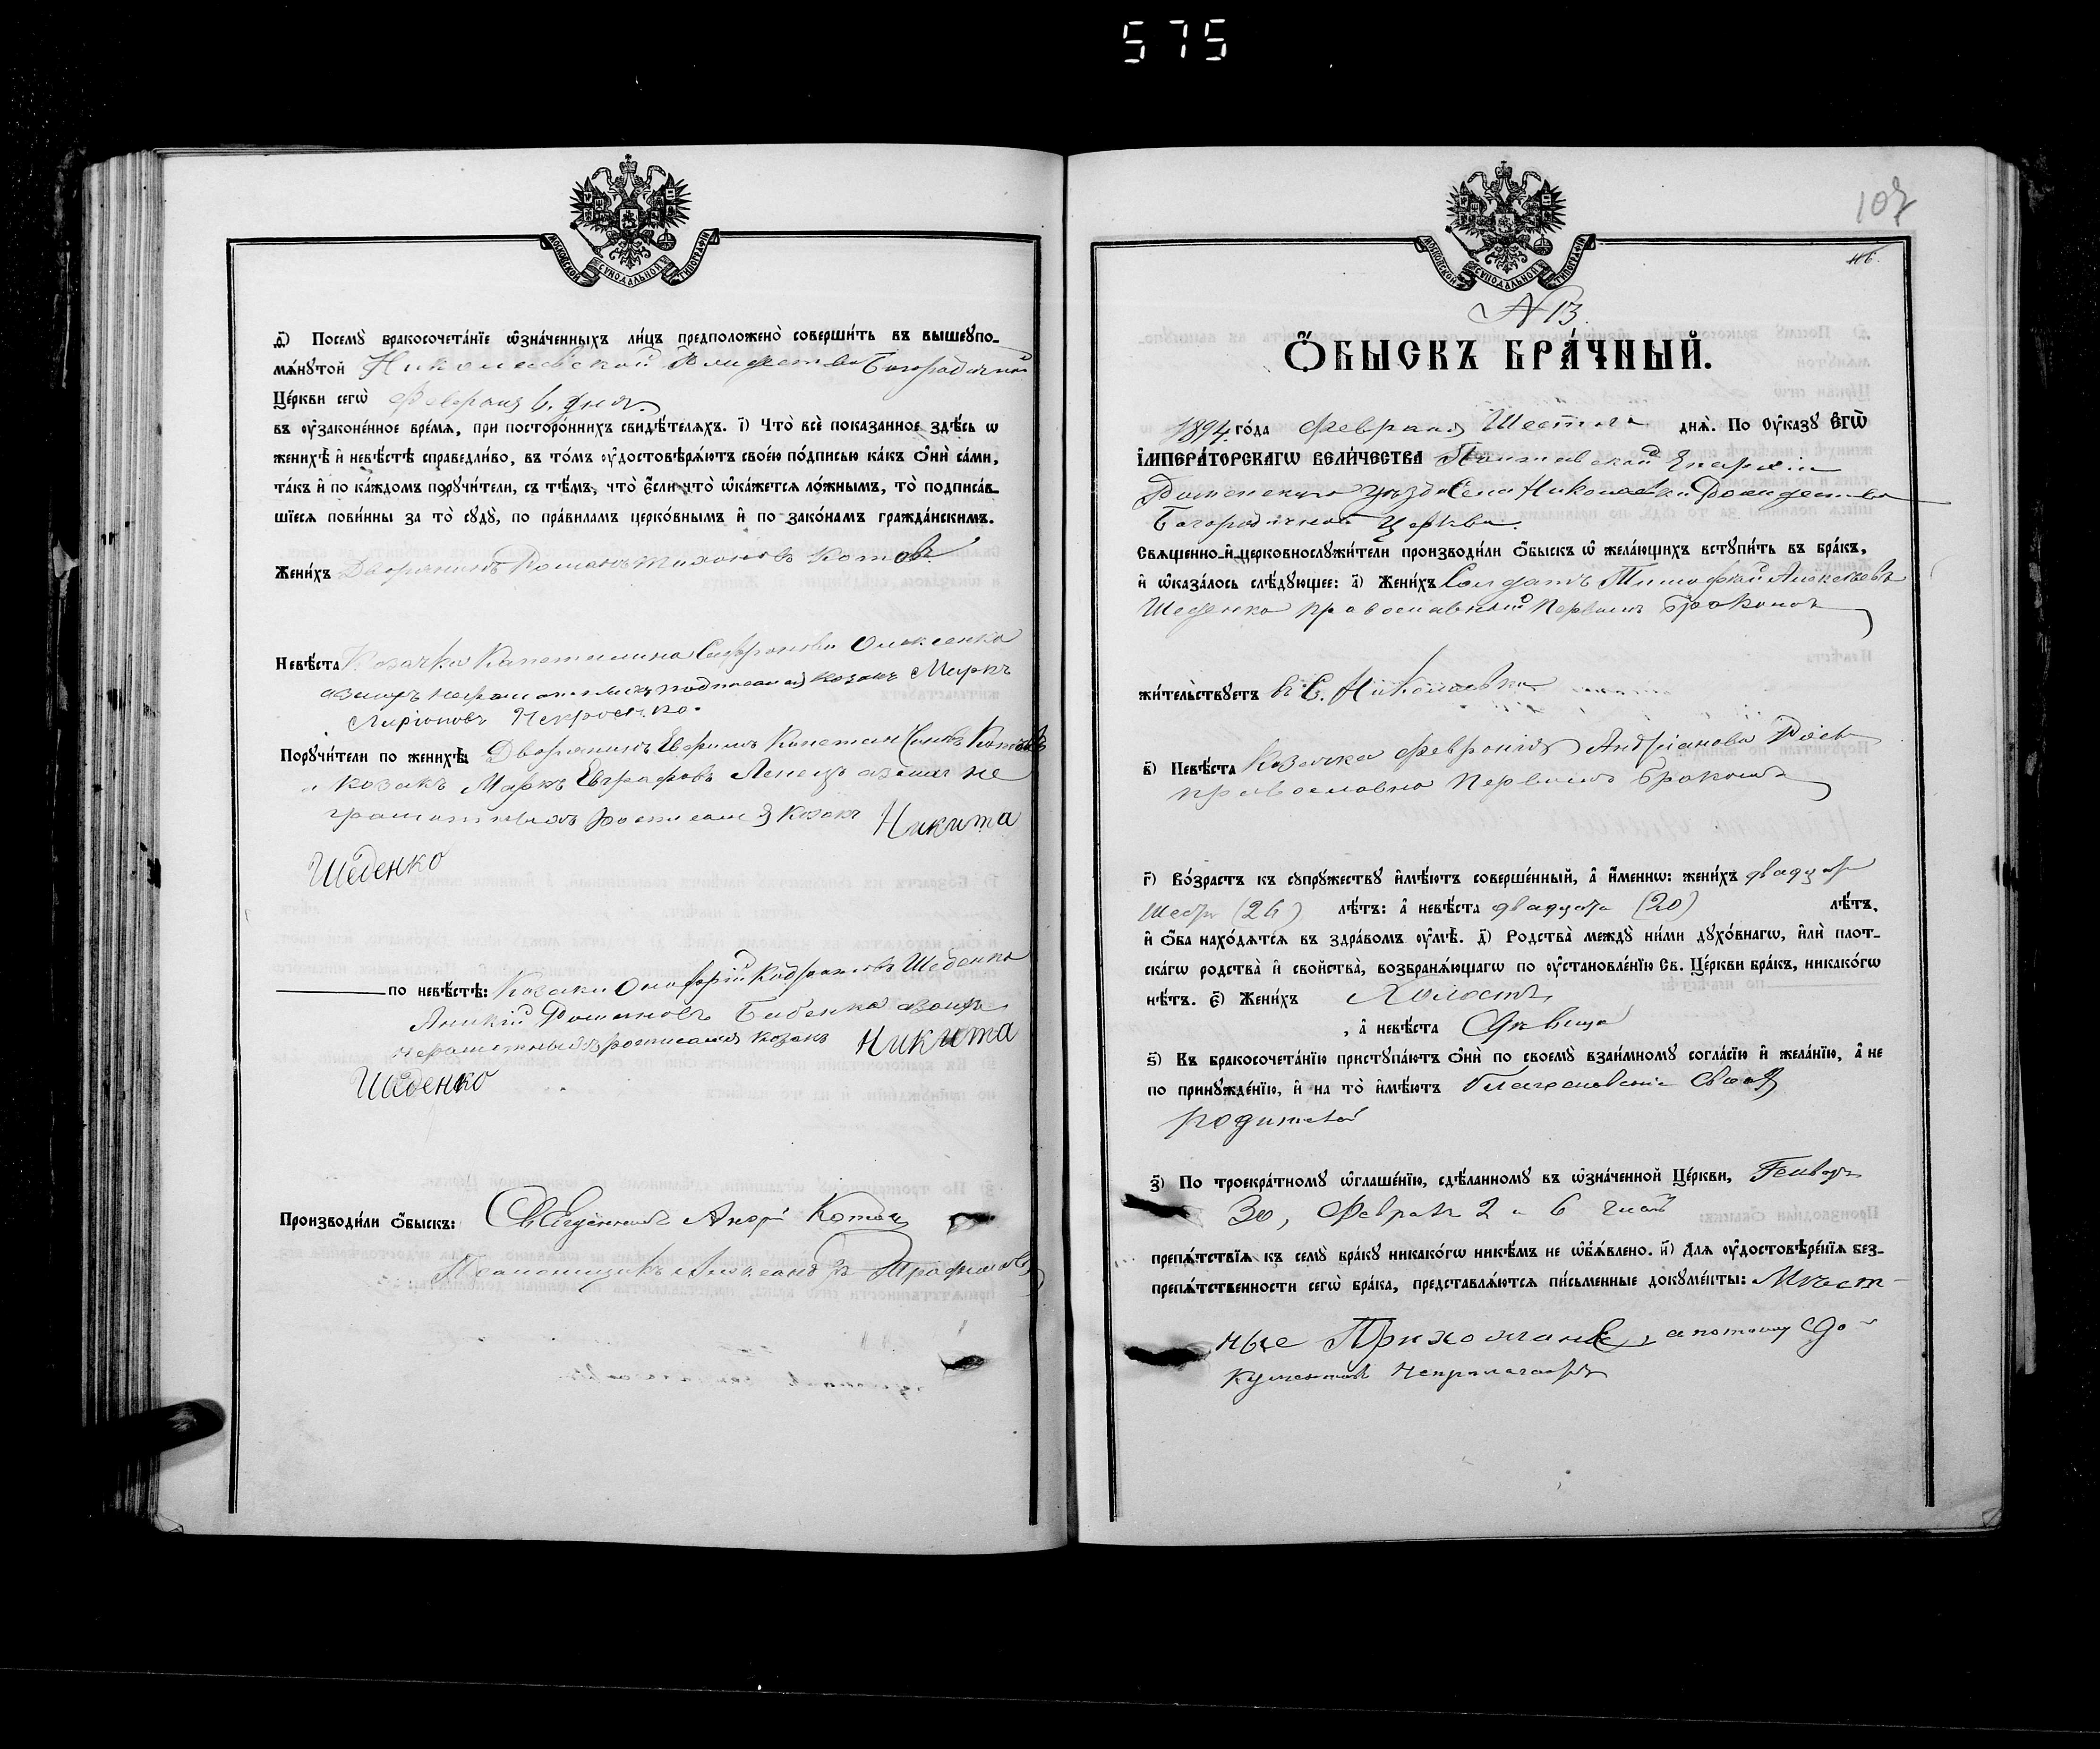 575
МОСКОВСКОЙ СѴНОДАЛЬНОЙ ТИПОГРАФІИ
д҃) Посемꙋ̀ бракосочета́нїе ѡ҆зна́ченныхъ ли́цъ предположено̀ соверши́ть въ вышеꙋпо-
мѧ́нꙋтой Николаевской Рождество Богородичной
Це́ркви сегѡ̀ Февраля 6. дня.
въ ᲂу҆зако́нное вре́мѧ, при посторо́ннихъ свидѣ́телѧхъ. і҃) Что̀ всѐ пока́занное здѣ́сь ѡ
женихѣ̀ и҆ невѣ́стѣ справедли́во, въ то́мъ ᲂу҆достовѣрѧ́ютъ свое́ю по́дписью ка́къ ѻ҆нѝ са́ми,
та́къ и҆ по ка́ждомъ порꙋчи́тели, съ тѣ́мъ, что̀ є҆́сли что̀ ѡ҆ка́жетсѧ ло́жнымъ, то̀ подписа́в-
шїесѧ пови́нны за то̀ сꙋдꙋ̀, по пра́виламъ церко́внымъ и҆ по зако́намъ гражда́нскимъ.
Жени́хъ Дворянинъ Романъ Тихоновъ Котовъ
Невѣ́ста Козачка Капетолина Софронова Олексенко
азаихъ неграмотныхъ подписался козакъ Маркъ
Ларіоновъ
Порꙋчи́тели по женихѣ̀: Дворянинъ Ефремъ Капетон Котовъ
и козакъ Маркъ Евграфовъ азаихъ не
грамотныхъ росписался козакъ Никита
Шеденко
по невѣ́стѣ: Козаки Онофрій Кодратовъ Шеденко
Аникій Романовъ Бабенко азаихъ
неграмотныхъ росписался козакъ Никита
Шеденко
Производи́ли ѻ҆́быскъ: Священникъ Андрей Котовъ
Псаломщикъ Александръ Трофимовъ
107
МОСКОВСКОЙ СѴНОДАЛЬНОЙ ТИПОГРАФІИ
116.
N 13.
Ѻ҆́БЫСКЪ БРА́ЧНЫЙ.
1894 го́да Февраля Шестаго днѧ̀. По Оу҆ка́зꙋ Е҆гѡ̀
И҆мпера́торскагѡ Вели́чества Полтавской Епархіи
Роменскаго уѣзда Села Николаевки Рождество
Богородичной Церкви
Свѧще́нно-и҆-церковнослꙋжи́тели производи́ли ѻ҆́быскъ ѡ҆ жела́ющихъ встꙋпи́ть въ бра́къ,
и҆ ѡ҆каза́лось слѣ́дꙋющее: а҃) Жени́хъ Солдатъ Тимофей Алексѣевъ
Шеденко православный Первымъ бракомъ
жи́тельствꙋетъ въ С. Николаевки
в҃) Невѣ́ста Козачка Февронія Андріанова
православна Первымъ бракомъ
г҃) Во́зрастъ къ сꙋпрꙋ́жествꙋ и҆мѣ́ютъ соверше́нный, а҆ и҆́меннѡ: жени́хъ двадцать
Шесть (26) лѣ́тъ: а҆ невѣ́ста двадцать (20) лѣ́тъ,
и҆ ѻ҆́ба нахо́дѧтсѧ въ здра́вомъ ᲂу҆мѣ̀. д҃) Родства̀ междꙋ̀ ни́ми дꙋхо́внагѡ, и҆лѝ пло́т-
скагѡ родства̀ и҆ сво́йства, возбранѧ́ющагѡ по ᲂу҆становле́нїю Св. Це́ркви бра́къ, никако́гѡ
нѣ́тъ. є҃) Жени́хъ Холостъ,
, а҆ невѣ́ста Дѣвица
ѕ҃) Къ бракосочета́нїю пристꙋпа́ютъ ѻ҆нѝ по своемꙋ̀ взаи́мномꙋ согла́сїю и҆ жела́нїю, а҆ не
по принꙋжде́нїю, и҆ на то̀ и҆мѣ́ютъ благословеніе Своихъ
родителей
з҃) По троекра́тномꙋ ѡ҆глаше́нїю, сдѣ́ланномꙋ въ ѡ҆зна́ченной Це́ркви, Генваря
30, Февраля 2 и 6 числъ
препѧ́тствїѧ къ семꙋ̀ бра́кꙋ никако́гѡ никѣ́мъ не ѡ҆б̾ѧ́влено. и҃) Длѧ ᲂу҆достовѣре́нїѧ без-
препѧ́тственности сегѡ̀ бра́ка, представлѧ́ютсѧ пи́сьменные докꙋме́нты: Мѣст-
ные Прихожане, а потому до-
кументовъ неприлагается